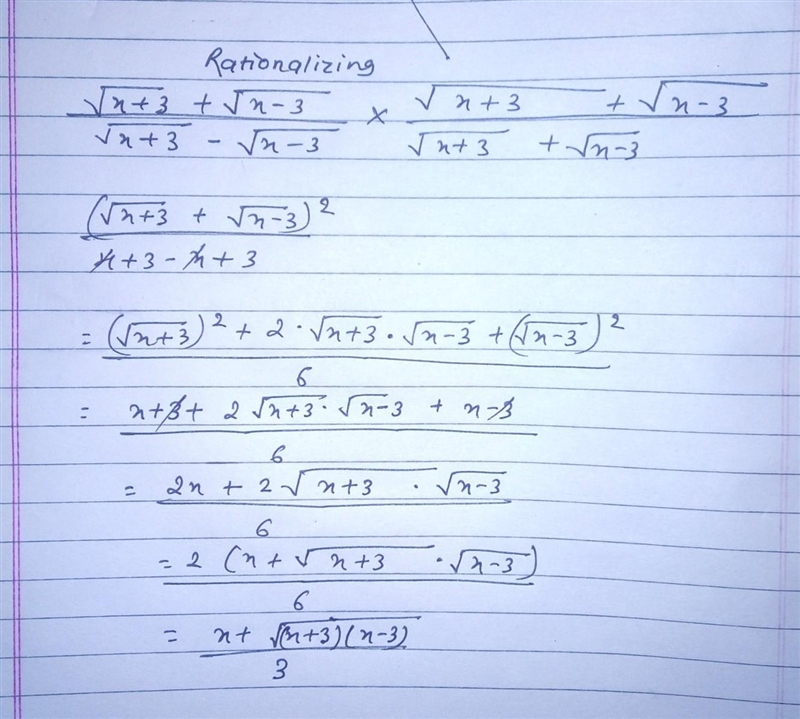 Rationalizing
(√(x+3) + √(x-3))/(√(x+3) - √(x-3)) × (√(x+3) + √(x-3))/(√(x+3) + √(x-3))
(√(x+3) + √(x-3))²/(x+3-x+3)
= ((√(x+3))² + 2·√(x+3)·√(x-3) + (√(x-3))²)/6
= (x+3+ 2√(x+3)·√(x-3) + x-3)/6
= (2x + 2√(x+3)·√(x-3))/6
= 2(x+√(x+3)·√(x-3))/6
= (x+ √((x+3)(x-3)))/3